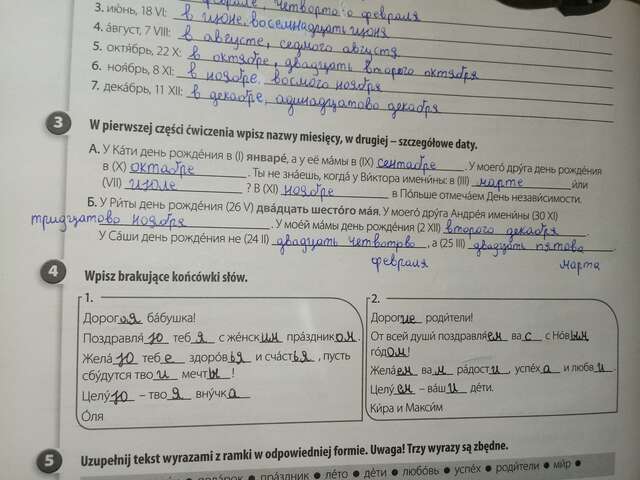 феврале, четвертого февраля
3. ию́нь, 18 VI: в июне, восемнадцатого июня
4. а́вгуст, 7 VIII: в августе, седмого августа
5. октя́брь, 22 X: в октябре, двадцать второго октября
6. ноя́брь, 8 XI: в ноябре, восмого ноября
7. дека́брь, 11 XII: в декабре, адинадцатово декабря
3 W pierwszej części ćwiczenia wpisz nazwy miesięcy, w drugiej – szczegółowe daty.
А. У Ка́ти день рожде́ния в (I) январе́, а у её ма́мы в (IX) сентябре. У моего́ дру́га день рожде́ния
в (X) октябре. Ты не зна́ешь, когда́ у Ви́ктора имени́ны: в (III) марте и́ли
(VII) июле? В (XI) ноябре в По́льше отмеча́ем День незави́симости.
Б. У Ри́ты день рожде́ния (26 V) два́дцать шесто́го ма́я. У моего́ дру́га Андре́я имени́ны (30 XI)
тридцатово ноября. У мое́й ма́мы день рожде́ния (2 XII) второго декабря.
У Са́ши день рожде́ния не (24 II) двадцать четвотово, а (25 III) двадцать пятова
февраля марта
4 Wpisz brakujące końcówki słów.
1.
Дорогая ба́бушка!
Поздравля́ю тебя с же́нским пра́здником.
Жела́ю тебе здоро́вья и сча́стья, пусть
сбу́дутся твои мечты!
Целу́ю – твоя вну́чка
О́ля
2.
Дорогие роди́тели!
От всей души́ поздравля́ем вас с Но́вым
го́дом!
Жела́ем вам ра́дости, успе́ха и любви.
Целу́ем – ва́ши де́ти.
Ки́ра и Макси́м
5 Uzupełnij tekst wyrazami z ramki w odpowiedniej formie. Uwaga! Trzy wyrazy są zbędne.
пода́рок • пра́здник • ле́то • де́ти • любо́вь • успе́х • роди́тели • ми́р •